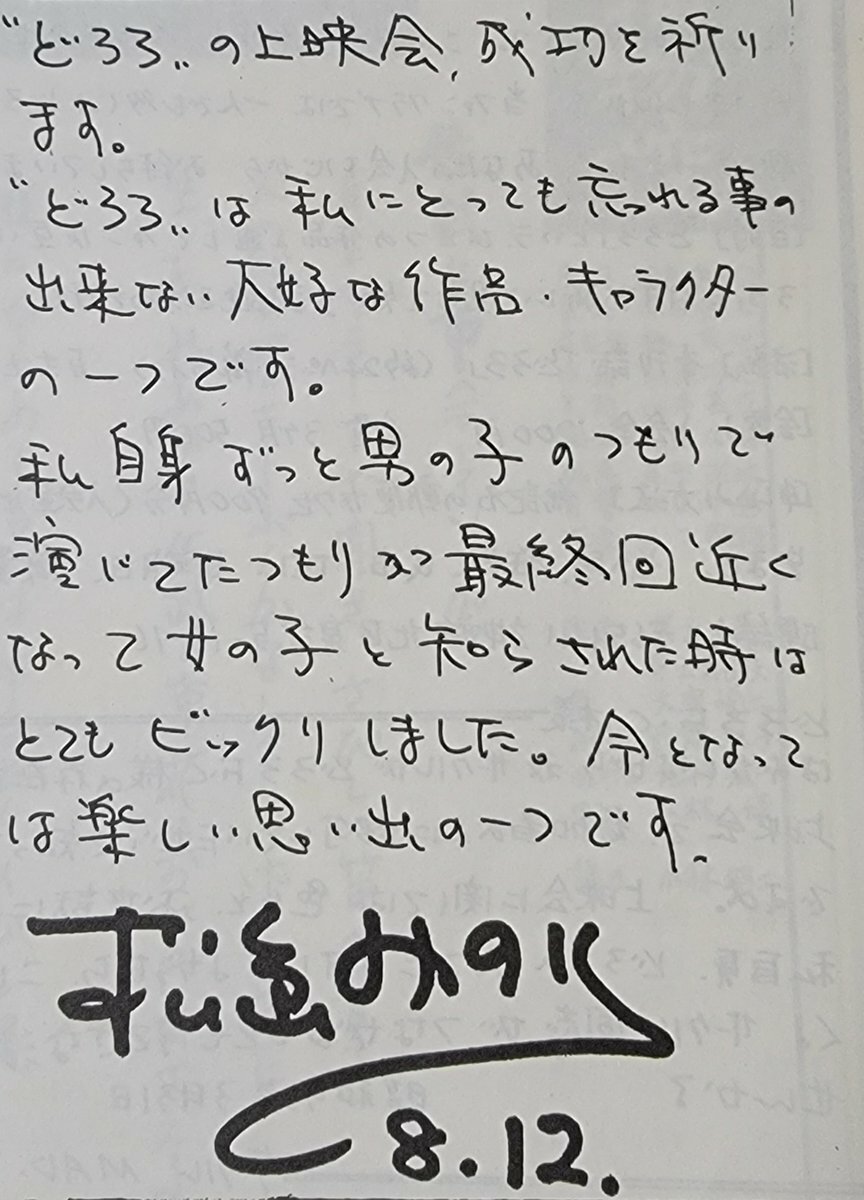 "どろろ"の上映会、成功を祈り
ます。
"どろろ"は私にとっても忘れる事の
出来ない大好な作品・キャラクター
の一つです。
私自身ずっと男の子のつもりで
演じてたつもりが最終回近く
なって女の子と知らされた時は
とてもビックリしました。今となって
は楽しい思い出の一つです。
松島みのり
8.12.